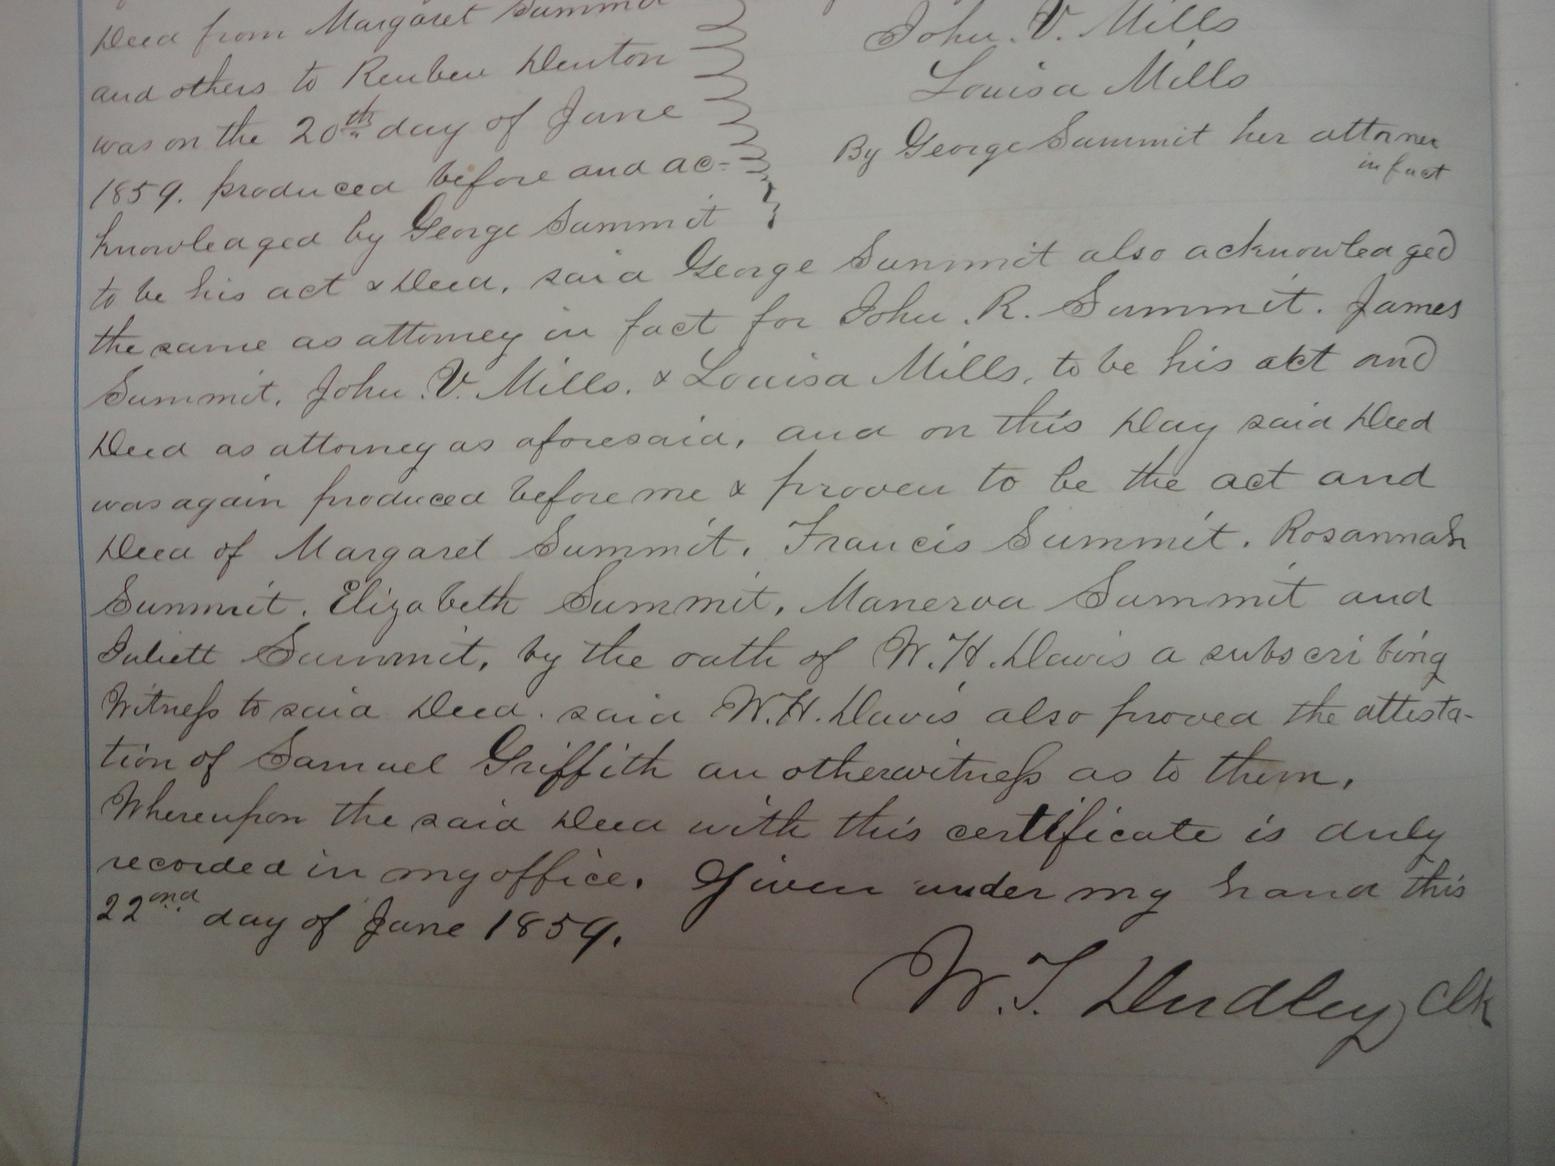 Deed from Margaret Summit
and others to Reuben Denton
was on the 20th day of June
1859. produced before and ac-
knowledged by George Summit
John. V. Mills
Louisa Mills
By George Summit her attorner
in fact
to be his act & Deed, said George Summit also acknowledged
the same as attorney in fact for John. R. Summit. James
Summit. John. V. Mills. & Louisa Mills, to be his act and
Deed as attorney as aforesaid, and on this Day said Deed
was again produced before me & proven to be the act and
Deed of Margaret Summit. Francis Summit. Rosannah
Summit. Elizabeth Summit, Manerva Summit and
Juliett Summit, by the oath of W. H. Davis a subscribing
Witness to said Deed. said W. H. Davis also proved the attesta-
tion of Samuel Griffith an other witness as to them.
Whereupon the said Deed with this certificate is duly
recorded in my office. Given under my hand this
22nd day of June 1859.
W. T. Dudley Clk